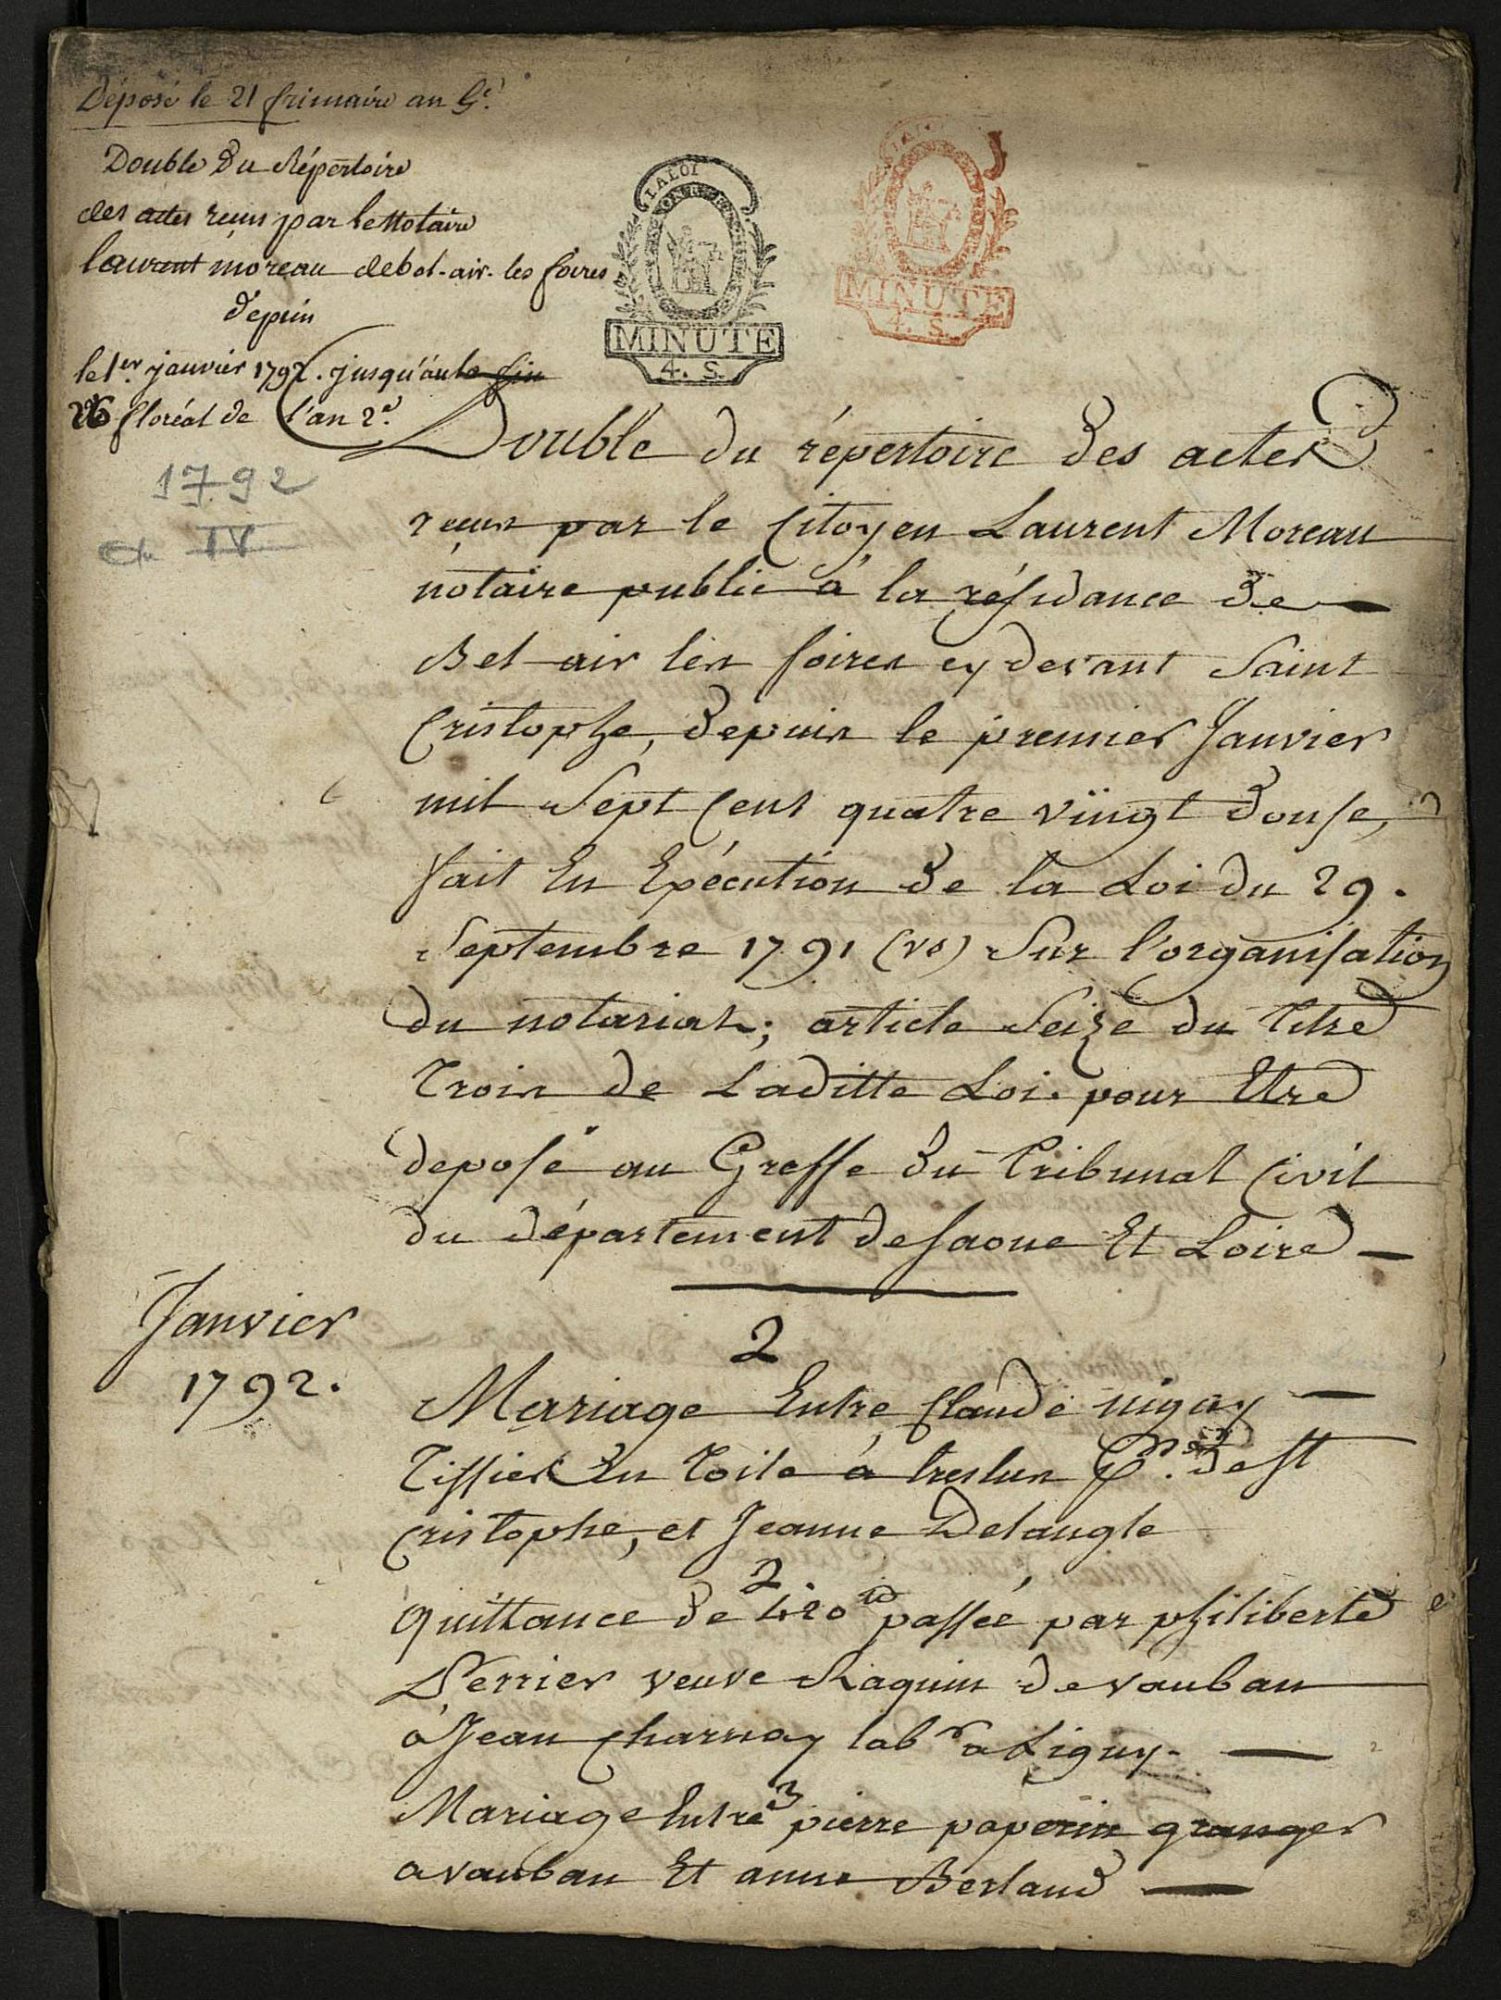 Déposé le 21 frimaire an 5e.
Double du Répertoire
des actes reçus par le Notaire
laurent moreau de bel-air-les foires
depuis
le 1er janvier 1792. jusqu'au la fin
26 floréal de l'an 2e.
1792
IV
LA LOI
MINUTE
4. S.
MINUTE
4. S.
Double du répertoire des actes
reçus par le Citoyen Laurent Moreau
notaire public à la résidance de
Bel-air les foires cy devant Saint
Cristophe, depuis le premier Janvier
mil Sept Cent quatre vingt douse,
fait En Exécution de la Loi du 29.
Septembre 1791 (vs) Sur l'organisation
du notariat; article Seize du titre
trois de Laditte Loi. pour Etre
deposé au Greffe du Tribunal Civil
du département de saone Et Loire
Janvier
1792.
2
Mariage Entre Claude nigay
Tissier En Toile à P. de St
Cristophe, et Jeanne Delangle
2
quittance de 420 passée par philiberte
Perrier veuve Raquin de vauban
à Jean Charnay labr a Ligny.
3
Mariage Entre pierre paperin granger
a vauban Et anne Berland